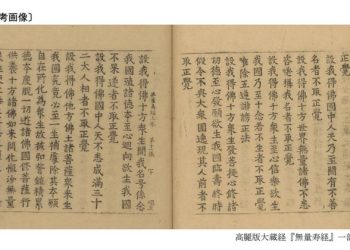 考画像〕
正覺
設我得佛國中人天乃至聞有不善
名者不取正覺
設我得佛十方世界無量諸佛不悉
咨嗟稱我名者不取正覺
設我得佛十方衆生至心信樂欲生
我國乃至十念若不生者不取正覺
唯除五逆誹謗正法
設我得佛十方衆生發菩提心修諸
功德至心發願欲生我國臨壽終時
假令不與大衆圍遶現其人前者不
取正覺
設我得佛十方衆生聞我名号係念
我國殖諸德本至心迴向欲生我國
不果遂者不取正覺
設我得佛國中人天不悉成滿三十
二大人相者不取正覺
設我得佛他方佛土諸菩薩衆來生
我國究竟必至一生補處除其本願
自在所化為衆生故被弘誓鎧積累
德本度脫一切遊諸佛國修菩薩行
供養十方諸佛如來開化恒沙無量
高麗版大蔵経『無量寿経』一部